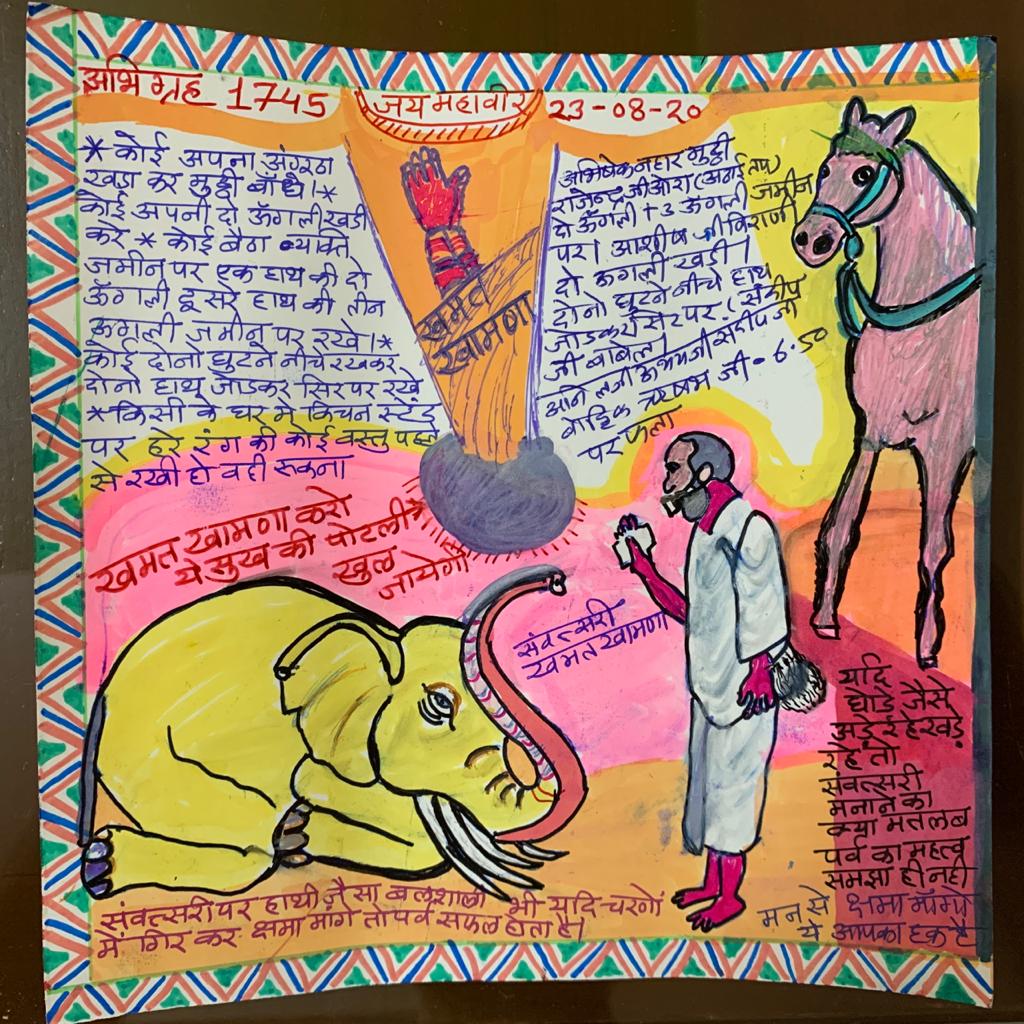 अभिग्रह 1745
जय महावीर
23-08-20
* कोई अपना अंगूठा
खड़ा कर मुट्ठी बाँधे।*
कोई अपनी दो ऊँगली खड़ी
करे * कोई बैठा व्यक्ति
जमीन पर एक हाथ की दो
ऊँगली दूसरे हाथ की तीन
ऊंगली जमीन पर रखे।*
कोई दोनो घुटने नीचे रखकर
दोनो हाथ जोडकर सिरपर रखे
*किसी के घर मे किचन स्टेंड
पर हरे रंग की कोई वस्तु पहले
से रखी हो वही रूकना
अभिषेक नाहर मुट्ठी
राजेन्द्र जी ओरा
दो ऊँगली +3 ऊंगली जमीन
पर। आशीष जी विराणी
दो ऊंगली खड़ी।
दोनो घुटने नीचे हाथ
जोडकर सिरपर। संदीप
जी बाबेल।
जी - 6.50
पर फला
खमत
खामणा
खमत खामणा करो
ये सुख की पोटली
खुल
जायेगी
संवत्सरी
खमत खामणा
यदि
घोडे जैसे
अड़े रहे खड़े
रहे तो
संवत्सरी
मनाने का
क्या मतलब
पर्व का महत्व
समझा ही नही
मन से क्षमा माँगो
ये आपका हक है
संवत्सरी पर हाथी जैसा बलशाली भी यदि चरणों
में गिर कर क्षमा मांगे तो पर्व सफल होता है।